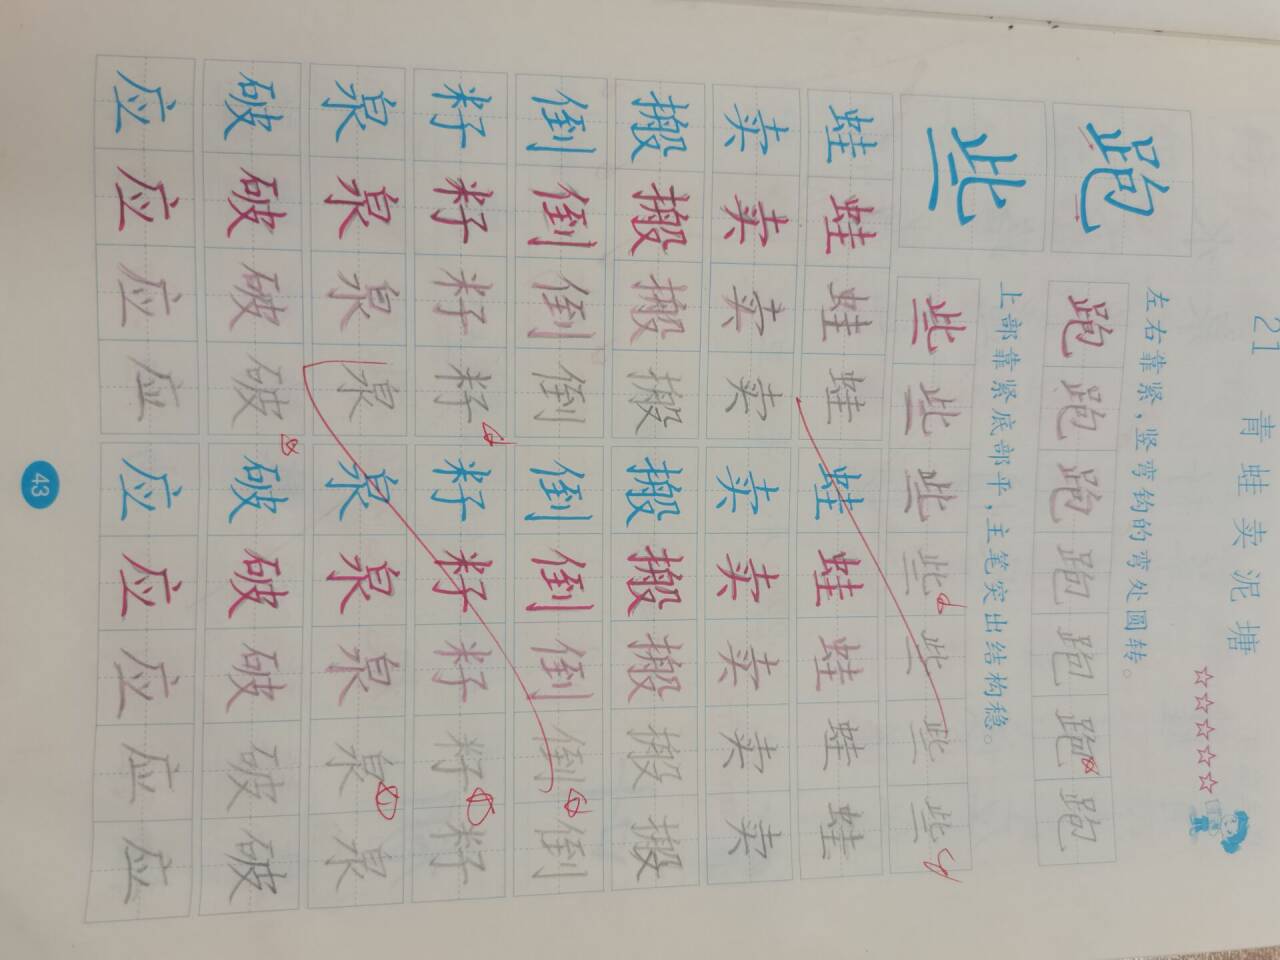 21 青蛙卖泥塘 ☆☆☆☆☆
左右靠紧，竖弯钩的弯处圆转。
跑 跑 跑 跑 跑 跑 跑 跑
上部靠紧底部平，主笔突出结构稳。
些 些 些 些 些 些 些 些
蛙 蛙 蛙 蛙 蛙 蛙 蛙 蛙 蛙
卖 卖 卖 卖 卖 卖 卖 卖 卖
搬 搬 搬 搬 搬 搬 搬 搬 搬
倒 倒 倒 倒 倒 倒 倒 倒 倒
籽 籽 籽 籽 籽 籽 籽 籽 籽
泉 泉 泉 泉 泉 泉 泉 泉 泉
破 破 破 破 破 破 破 破 破
应 应 应 应 应 应 应 应 应
43